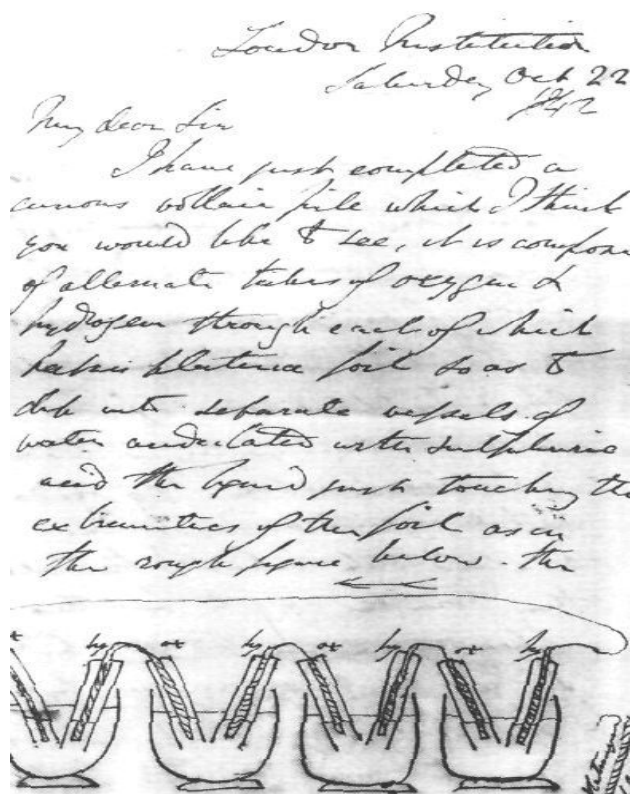 London Institution
Saturday Oct 22
1842
My dear Sir
I have just completed a
curious voltaic pile which I think
you would like to see, it is compose
of alternate tubes of oxygen &
hydrogen through each of which
passes platina foil so as to
dip into separate vessels of
water acidulated with sulphuric
acid the liquid just touching the
extremities of the foil as in
the rough figure below. the
hy ox hy ox hy ox hy